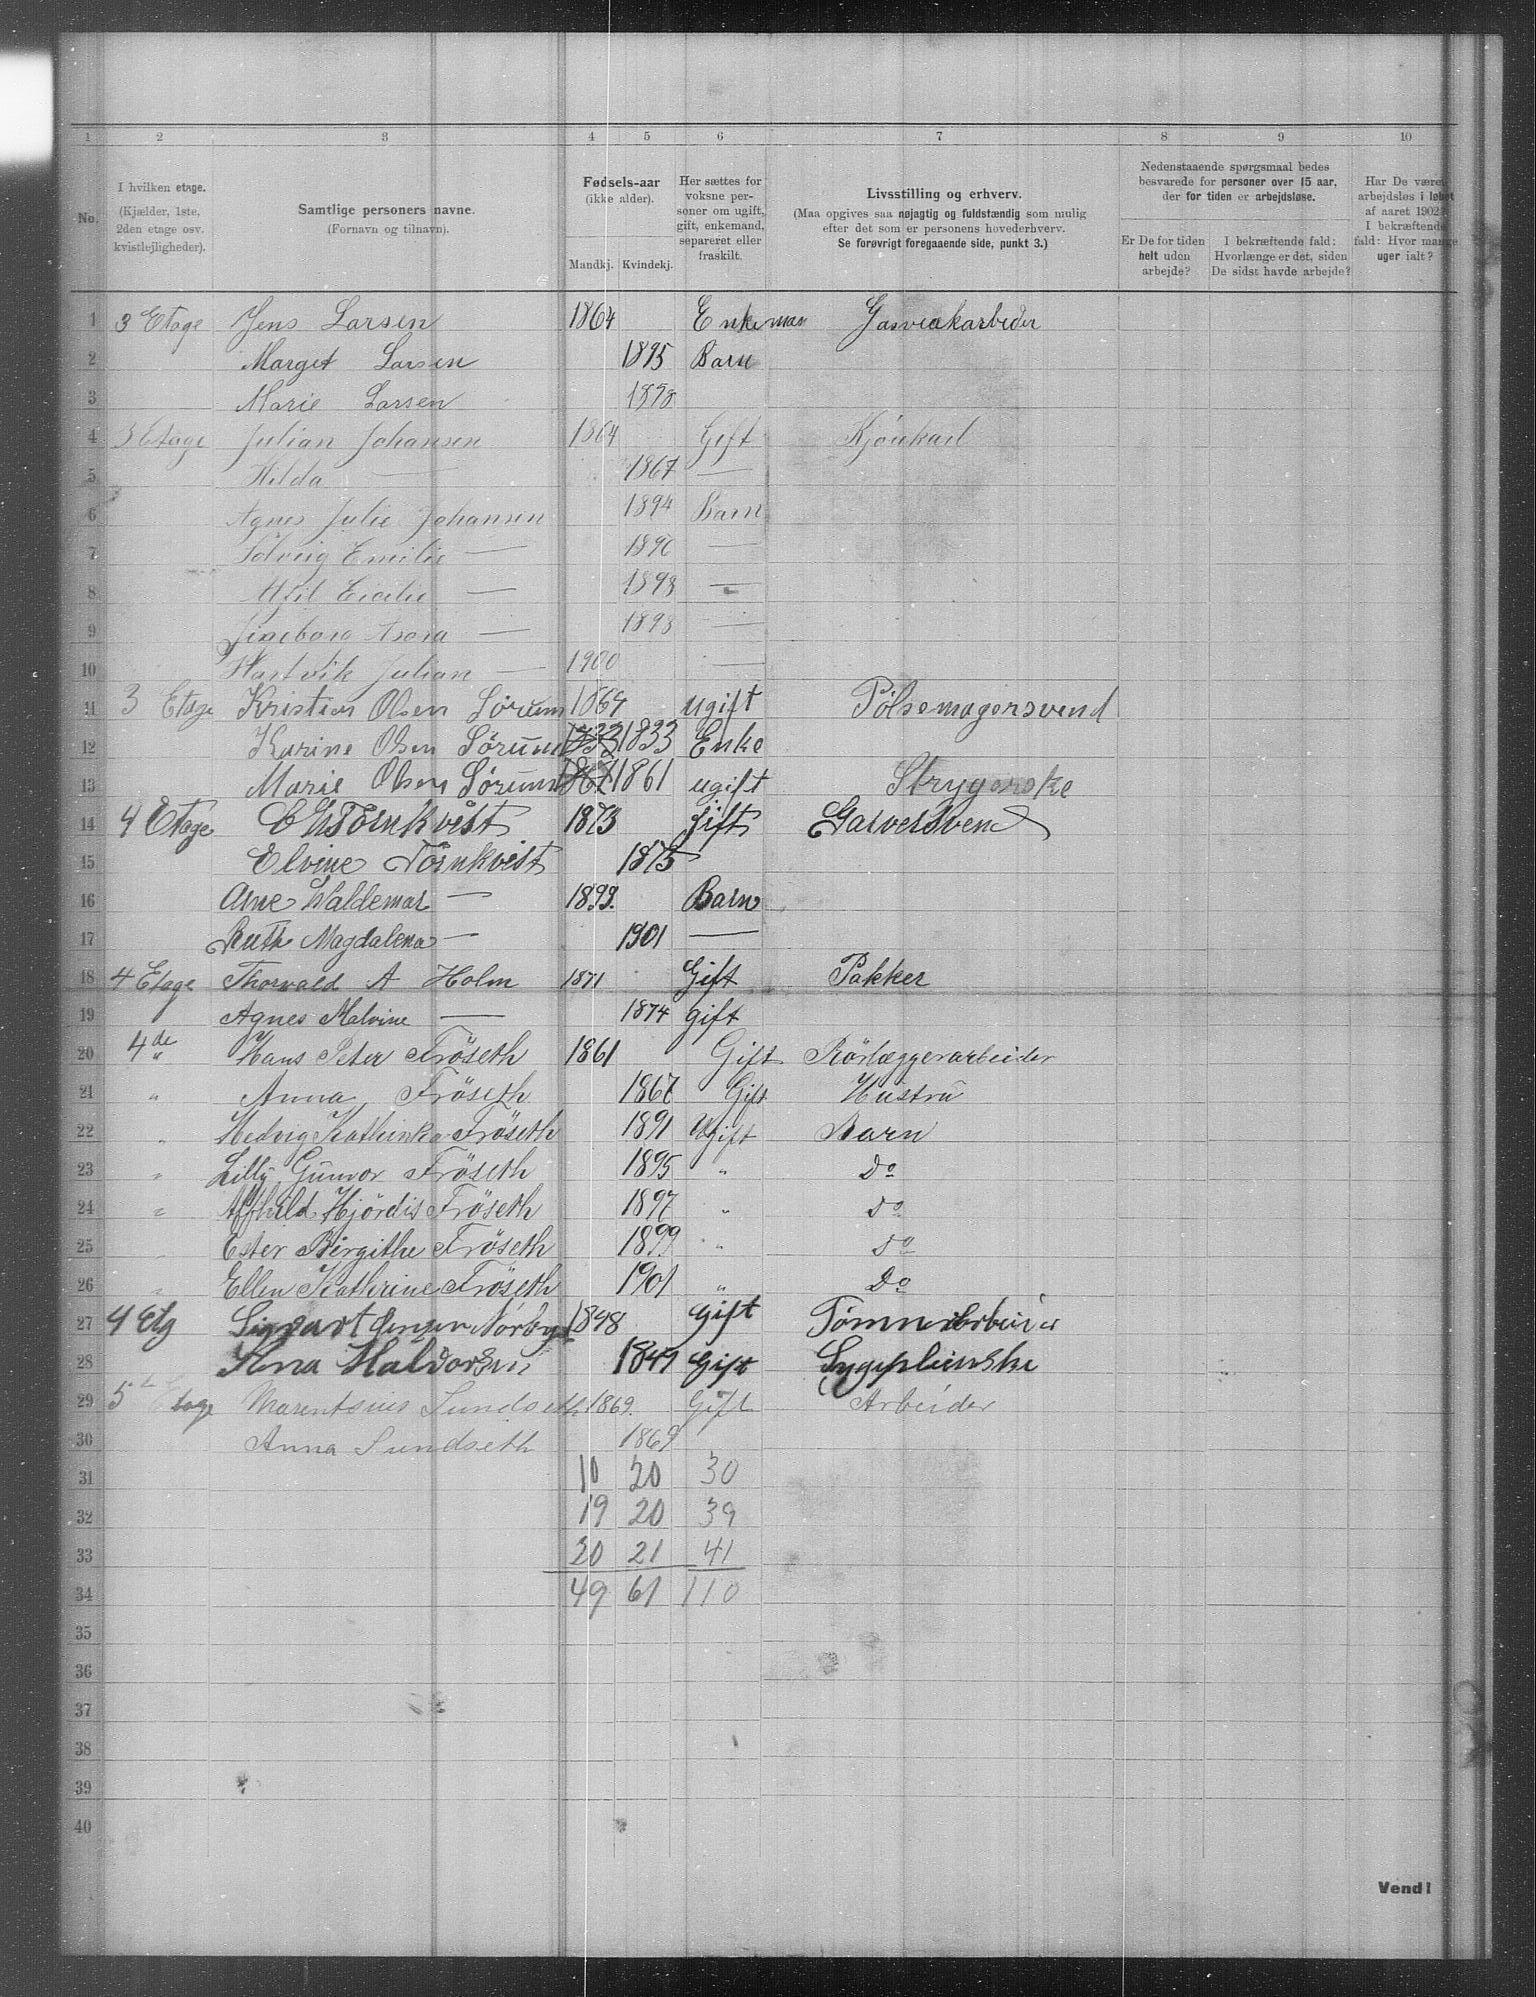 1 2 3 4 5 6 7 8 9 10
No.
I hvilken etage.
(Kjælder, 1ste,
2den etage osv.
kvistlejligheder).
Samtlige personers navne.
(Fornavn og tilnavn).
Fødsels-aar
(ikke alder).
Mandkj. Kvindekj.
Her sættes for
voksne per-
soner om ugift,
gift, enkemand,
separeret eller
fraskilt.
Livsstilling og erhverv.
(Maa opgives saa nøjagtig og fuldstændig som mulig
efter det som er personens hovederhverv.
Se forøvrigt foregaaende side, punkt 3.)
Nedenstaaende spørgsmaal bedes
besvarede for personer over 15 aar,
der for tiden er arbejdsløse.
Er De for tiden
helt uden
arbejde?
I bekræftende fald:
Hvorlænge er det, siden
De sidst havde arbejde?
Har De været
arbejdsløs i løbet
af aaret 1902?
I bekræftende
fald: Hvor mange
uger ialt?
1 3 Etage Jens Larsen 1864 Enkeman Gasverkarbeider
2 Marget Larsen 1895 Barn
3 Marie Larsen 1898
4 3 Etage Julian Johansen 1864 Gift
5 Hilda — 1867 —
6 Agnes Julie Johansen 1894 Barn
7 Solveig Emilie — 1896 —
8 — 1898 —
9 Ingeborg — 1898 —
10 Hartvik Julian — 1900 —
11 3 Etage Kristian Olsen Sörum 1864 ugift Pölsemagersvend
12 Karine Olsen Sörum 1833 1833 Enke
13 Marie Olsen Sörum 1861 1861 ugift Strygerske
14 4 Etage Törnkvist 1873 Gift Garversvend
15 Elvine Törnkvist 1875
16 Arne Waldemar — 1899. Barn
17 Ruth Magdalena — 1901 —
18 4 Etage Thorvald A Holm 1871 Gift Pakker
19 Agnes Malvine — 1874 gift
20 4de " Hans Peter Fröseth 1861 Gift Rörlæggerarbeider
21 " Anna Fröseth 1867 Gift Hustru
22 " Hedvig Kathinka Fröseth 1891 Ugift Barn
23 " Lilly Gunvor Fröseth 1895 " Do
24 " Alfhild Hjördis Fröseth 1897 " Do
25 " Ester Birgithe Fröseth 1899 " Do
26 " Ellen Kathrine Fröseth 1901 " Do
27 4 Etg Sigvart Jensen Nörby 1848 Gift Tømmerarbeider
28 Haldorsen 1849 Gift Sygepleierske
29 5 Etage Sundseth 1869. Gift Arbeider
30 Anna Sundseth 1869
31 10 20 30
32 19 20 39
33 20 21 41
34 49 61 110
35
36
37
38
39
40
Vend!